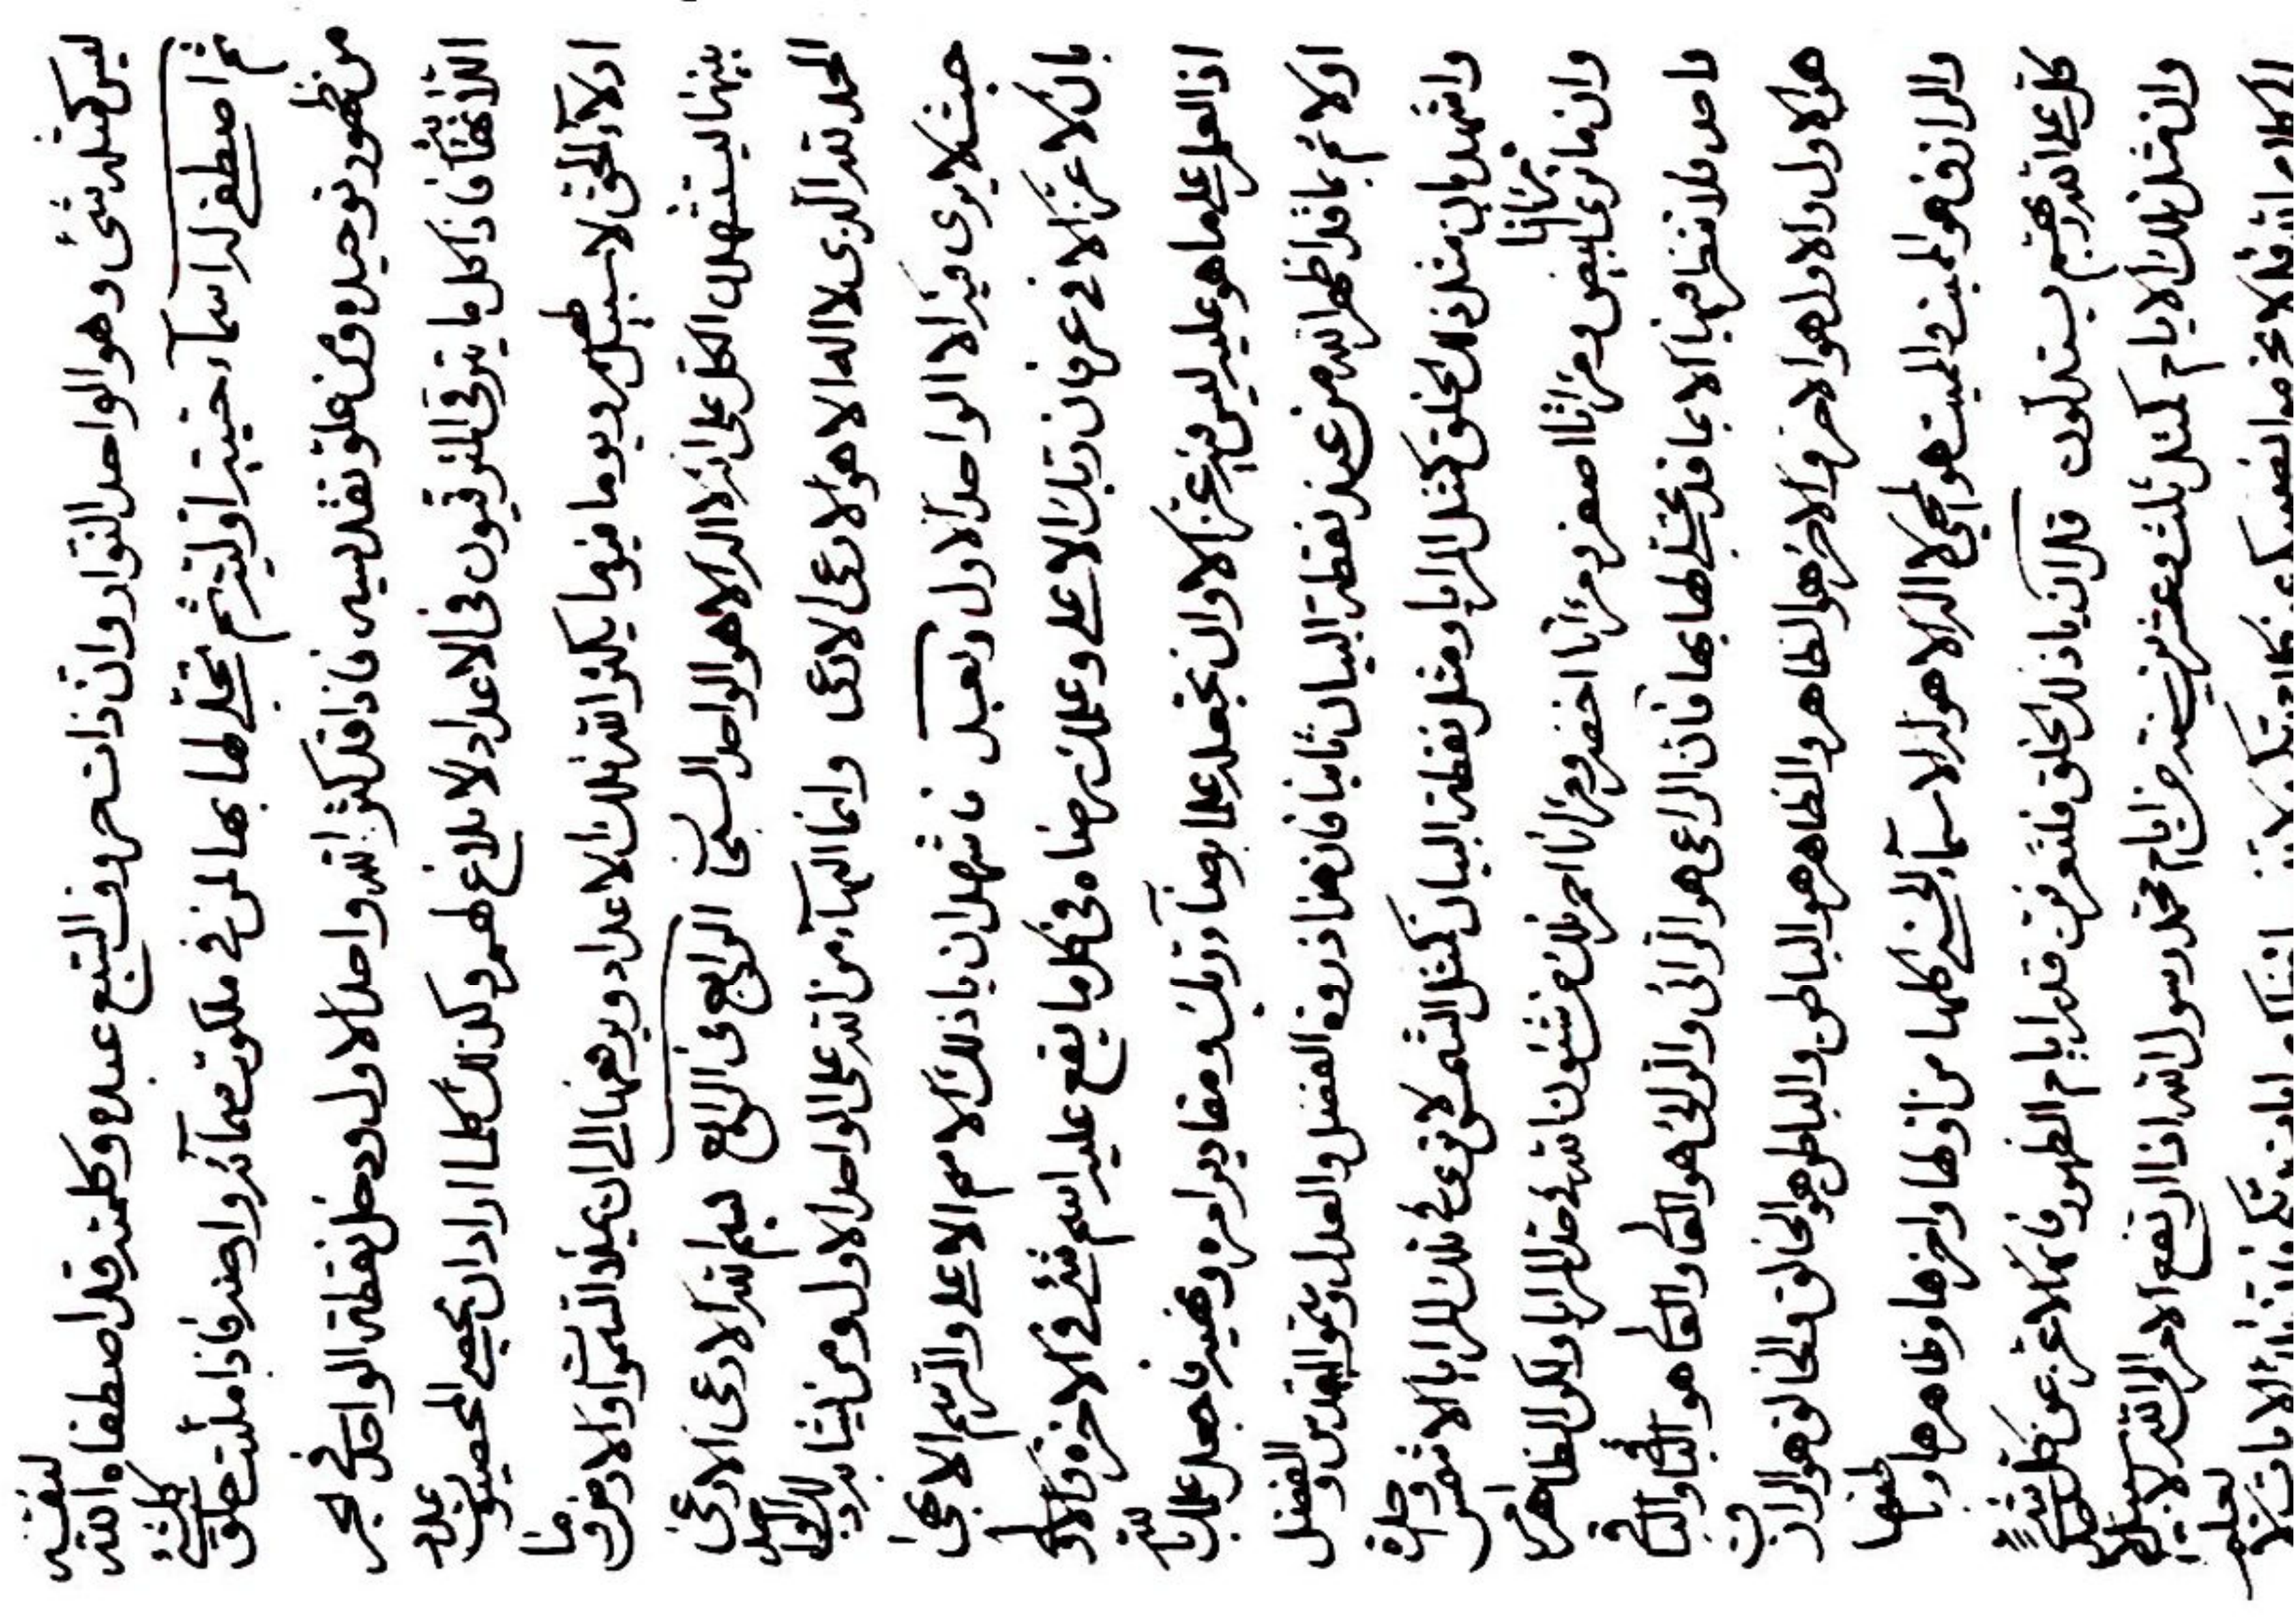 ليس كمثله شئ وهو الواحد النوار وان ذات حروف السبع عبده وكلمته قد اصطفاه الله لنفسه
ثم اصطفى له اسماء اوليته ثم تجلى لها بها لمن في ملكوت سمائه وارضه فاذا ملئت خلق كلشئ
من ظهور توحيده ومن علو تقديسه فاذا قد كثر الله واحد الاول ودخل نقطة الواحد في بحر
اللانهاية فاذا كل ما يترقى المترقيون في الاعداد لا بلاغ لهم وكذلك كلما اراد ان يحصي المحصيون عدد
ادلاء الحق لا سبيل لهم ويوما فيوما يكثر الله تلك الاعداد ويرفعها الى ان يملأ السموات والارض وما
بينهما ليستشهدن الكل على انه لا اله الا هو الواحد السبحان الرابع في الرابع بسم الله الارعى الارعى
الحمد لله الذي لا اله الا هو الارعى الارعى وانما البهاء من الله على الواحد الاول ومن يشابه ذلك الواحد
حيث لا يرى فيه الا الواحد الاول وبعد فاشهد ان ياذلك الاسم الاعلى والرسم الابهى
بان لا عز الا في عرفان ربك الاعلى وعملك برضاه في كل ما يقع عليه اسم شئ في الاخرة والاولى
اذ العلم على ما هو عليه ليس فيه عز الا وان تجعله علما برضاء ربك ومقادير امره ونهيه فاجعل علمك بالله
اولا ثم بما قد اظهر الله من عند نقطة البيان ثانيا فان هنا ذروة الفضل والعدل وسمو القدس والفضل
واشهد بان مثل ذلك الخلق كمثل المرايا ومثل نقطة البيان كمثل الشمس لا ترى في تلك المرايا الا شمس واحدة
وان ما ترى مرآتا ابيض ومرآتا اصفر ومرآتا اخضر ومرآتا احمر تلك من شئون الله في حد المرايا ولكن الظاهر
واحد فلا تنظر فيها الا بما قد تجلى لها بها فان الراعى هو الرائى والرائى هو
هو الاول والاول هو الاخر والاخر هو الظاهر والظاهر هو الباطن والباطن هو الخالق والخالق هو الرازق
والرازق هو المميت والمميت هو المحيي لا اله الا هو له الاسماء الحسنى كلها من اولها واخرها وظاهرها وباطنها
كل على الله ربهم يستدلون قل ان ياذلك الخلق فلتعرفن قدر ايام الظهور فانها لا عز عن كل شئ
وان مثل تلك الايام كمثل ثلث وعشرين سنة من ايام محمد رسول الله اذا ارتفع الامر الى الله لا سبيل